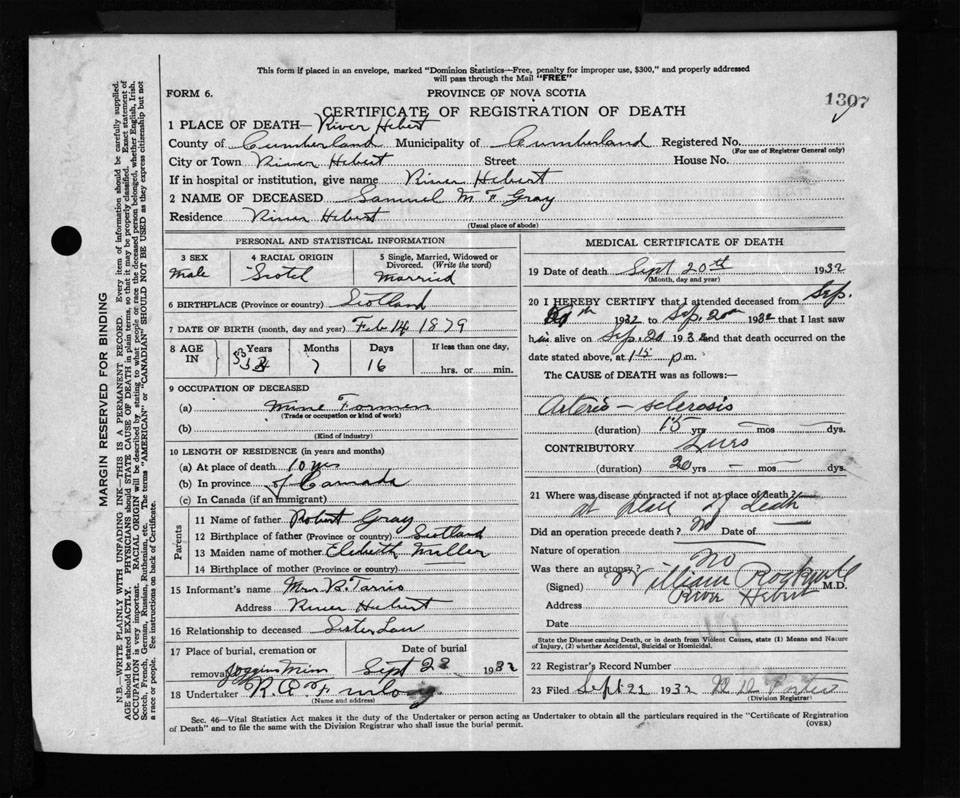 This form if placed in an envelope, marked "Dominion Statistics—Free, penalty for improper use, $300," and properly addressed
will pass through the Mail "FREE"
FORM 6.
PROVINCE OF NOVA SCOTIA
1307
CERTIFICATE OF REGISTRATION OF DEATH
1 PLACE OF DEATH— River Hebert
County of Cumberland Municipality of Cumberland Registered No.
(For use of Registrar General only)
City or Town River Hebert Street House No.
If in hospital or institution, give name River Hebert
2 NAME OF DECEASED Samuel M. F. Gray
Residence River Hebert
(Usual place of abode)
PERSONAL AND STATISTICAL INFORMATION
3 SEX 4 RACIAL ORIGIN 5 Single, Married, Widowed or
Divorced. (Write the word)
Male Scotch Married
6 BIRTHPLACE (Province or country) Scotland
7 DATE OF BIRTH (month, day and year) Feb 14 1879
8 AGE IN Years Months Days If less than one day,
53 7 16 hrs. or min.
9 OCCUPATION OF DECEASED
(a) Mine Forman
(Trade or occupation or kind of work)
(b)
(Kind of industry)
10 LENGTH OF RESIDENCE (in years and months)
(a) At place of death 10 yrs
(b) In province of Canada
(c) In Canada (if an immigrant)
Parents
11 Name of father Robert Gray
12 Birthplace of father (Province or country) Scotland
13 Maiden name of mother Elizabeth Miller
14 Birthplace of mother (Province or country)
15 Informant's name Mrs B.
Address River Hebert
16 Relationship to deceased Sister Law
17 Place of burial, cremation or Date of burial
removal Joggins Mines Sept 22 1932
18 Undertaker R.
(Name and address)
MEDICAL CERTIFICATE OF DEATH
19 Date of death Sept 20th 1932
(Month, day and year)
20 I HEREBY CERTIFY that I attended deceased from Sep.
1932 to Sep. 20th 1932 that I last saw
him alive on Sep. 20 1932 and that death occurred on
date stated above, at 1 15 p.m.
The CAUSE of DEATH was as follows:—
Arterio-sclerosis
(duration) 15 yrs — mos — dys.
CONTRIBUTORY
(duration) 20 yrs — mos — dys.
21 Where was disease contracted if not at place of death?
At place of death
Did an operation precede death? No Date of
Nature of operation
Was there an autopsy? No
(Signed) William Rockwell M.D.
Address River Hebert
Date
State the Disease causing Death, or in death from Violent Causes, state (1) Means and Nature
of Injury, (2) whether Accidental, Suicidal or Homicidal.
22 Registrar's Record Number
23 Filed Sept 21 1932
(Division Registrar)
Sec. 46—Vital Statistics Act makes it the duty of the Undertaker or person acting as Undertaker to obtain all the particulars required in the "Certificate of Registration
of Death" and to file the same with the Division Registrar who shall issue the burial permit. (OVER)
MARGIN RESERVED FOR BINDING
N.B.—WRITE PLAINLY WITH UNFADING INK—THIS IS A PERMANENT RECORD. Every item of information should be carefully supplied.
AGE should be stated EXACTLY. PHYSICIANS should STATE CAUSE OF DEATH in plain terms, so that it may be properly classified. Exact statement of
OCCUPATION is very important. RACIAL ORIGIN will be described by stating to what people or race the deceased person belonged, whether English, Irish,
Scotch, French, German, Russian, Ruthenian, etc. The terms "AMERICAN" or "CANADIAN" SHOULD NOT BE USED as they express citizenship but not
a race or people. See instructions on back of Certificate.